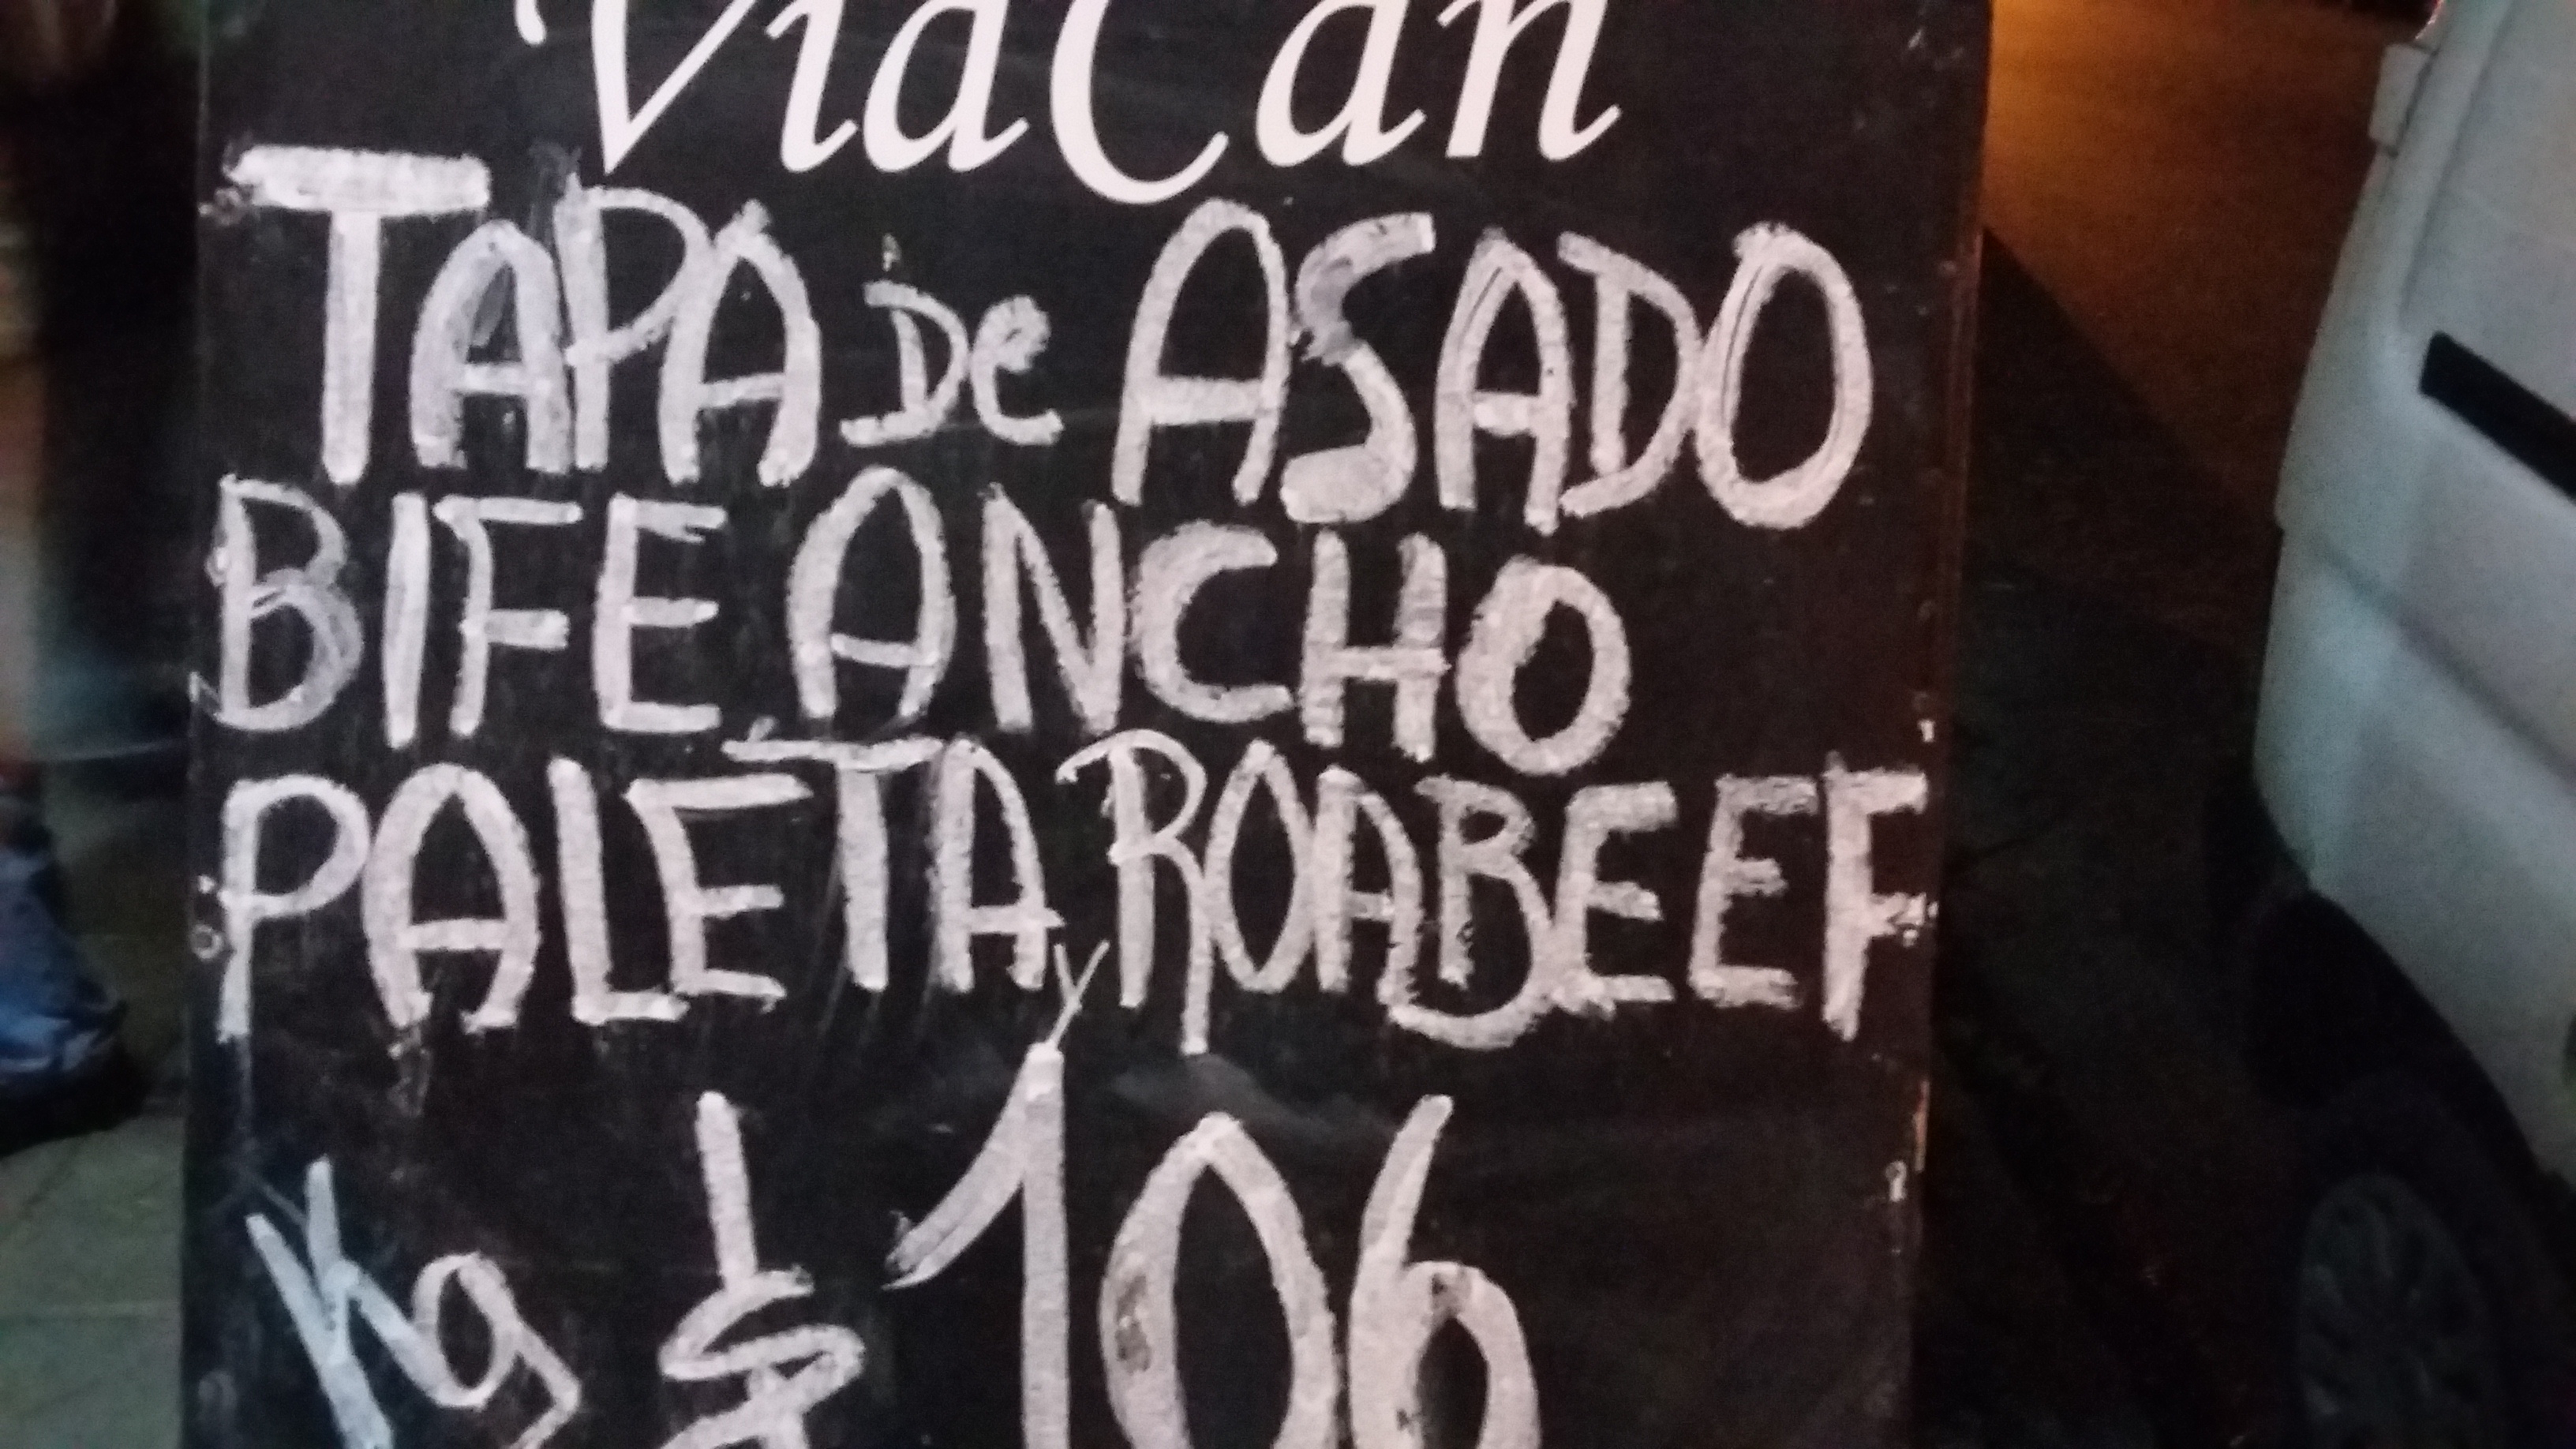 ViaCan
TAPA De ASADO
BIFE ANCHO
PALETA Y ROABEEF
Kg $ 106